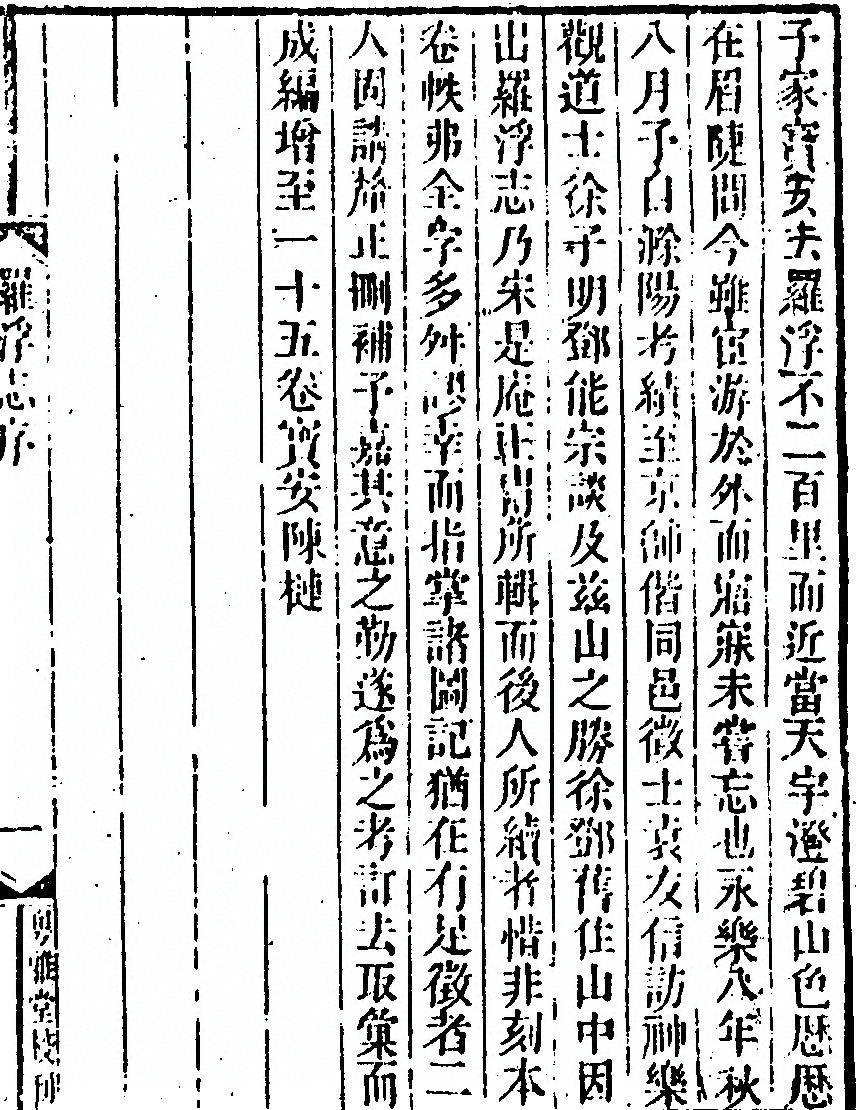 予家寶安去羅浮不二百里而近當天宇澄碧山色歷歷
在眉睫間今雖宦游於外而寤寐未嘗忘也永樂八年秋
八月予自滁陽考績至京師偕同邑徵士袁友信訪神樂
觀道士徐子明鄧能宗談及茲山之勝徐鄧舊住山中因
出羅浮志乃宋是庵王胄所輯而後人所續者惜非刻本
卷帙弗全字多舛誤幸而指掌諸圖記猶在有足徵者二
人固請於正刪補予嘉其意之勤遂爲之考訂去取彙而
成編增至一十五卷寶安陳槤
羅浮志序
一
粵雅堂校刊